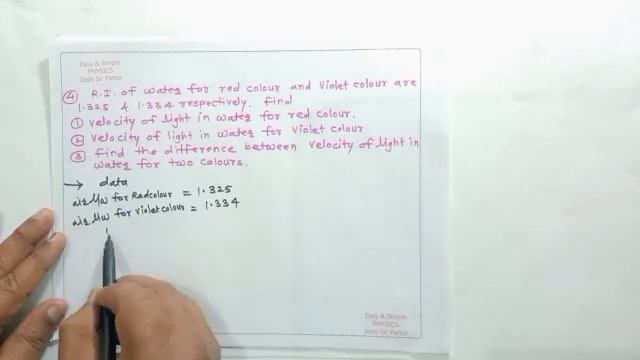 Easy & Simple
PHYSICS
Joshi Sir Partur
④ R.I. of water for red colour and violet colour are
1.325 & 1.334 respectively. find
① velocity of light in water for red colour.
② velocity of light in water for violet colour
③ find the difference between velocity of light in
water for two colours.
→ data
air μw for Red colour = 1.325
air μw for violet colour = 1.334
Easy & Simple
PHYSICS
Joshi Sir Partur